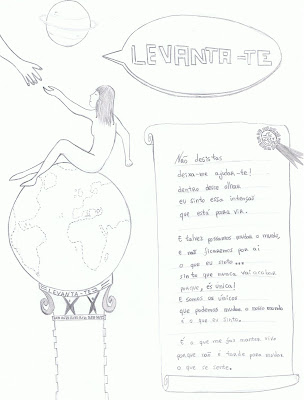 LEVANTA-TE
Não desistas
deixa-me ajudar-te!
dentro desse olhar
eu sinto essa intenção
que está para vir.
E talvez possamos mudar o mundo,
e não ficaremos por aí
o que eu sinto...
sinto que nunca vai acabar
porque, és única!
E somos os únicos
que podemos mudar o nosso mundo
é o que eu sinto.
É o que me faz manter vivo
porque não é tarde para mudar
o que se sente.
LEVANTA-TE
XX